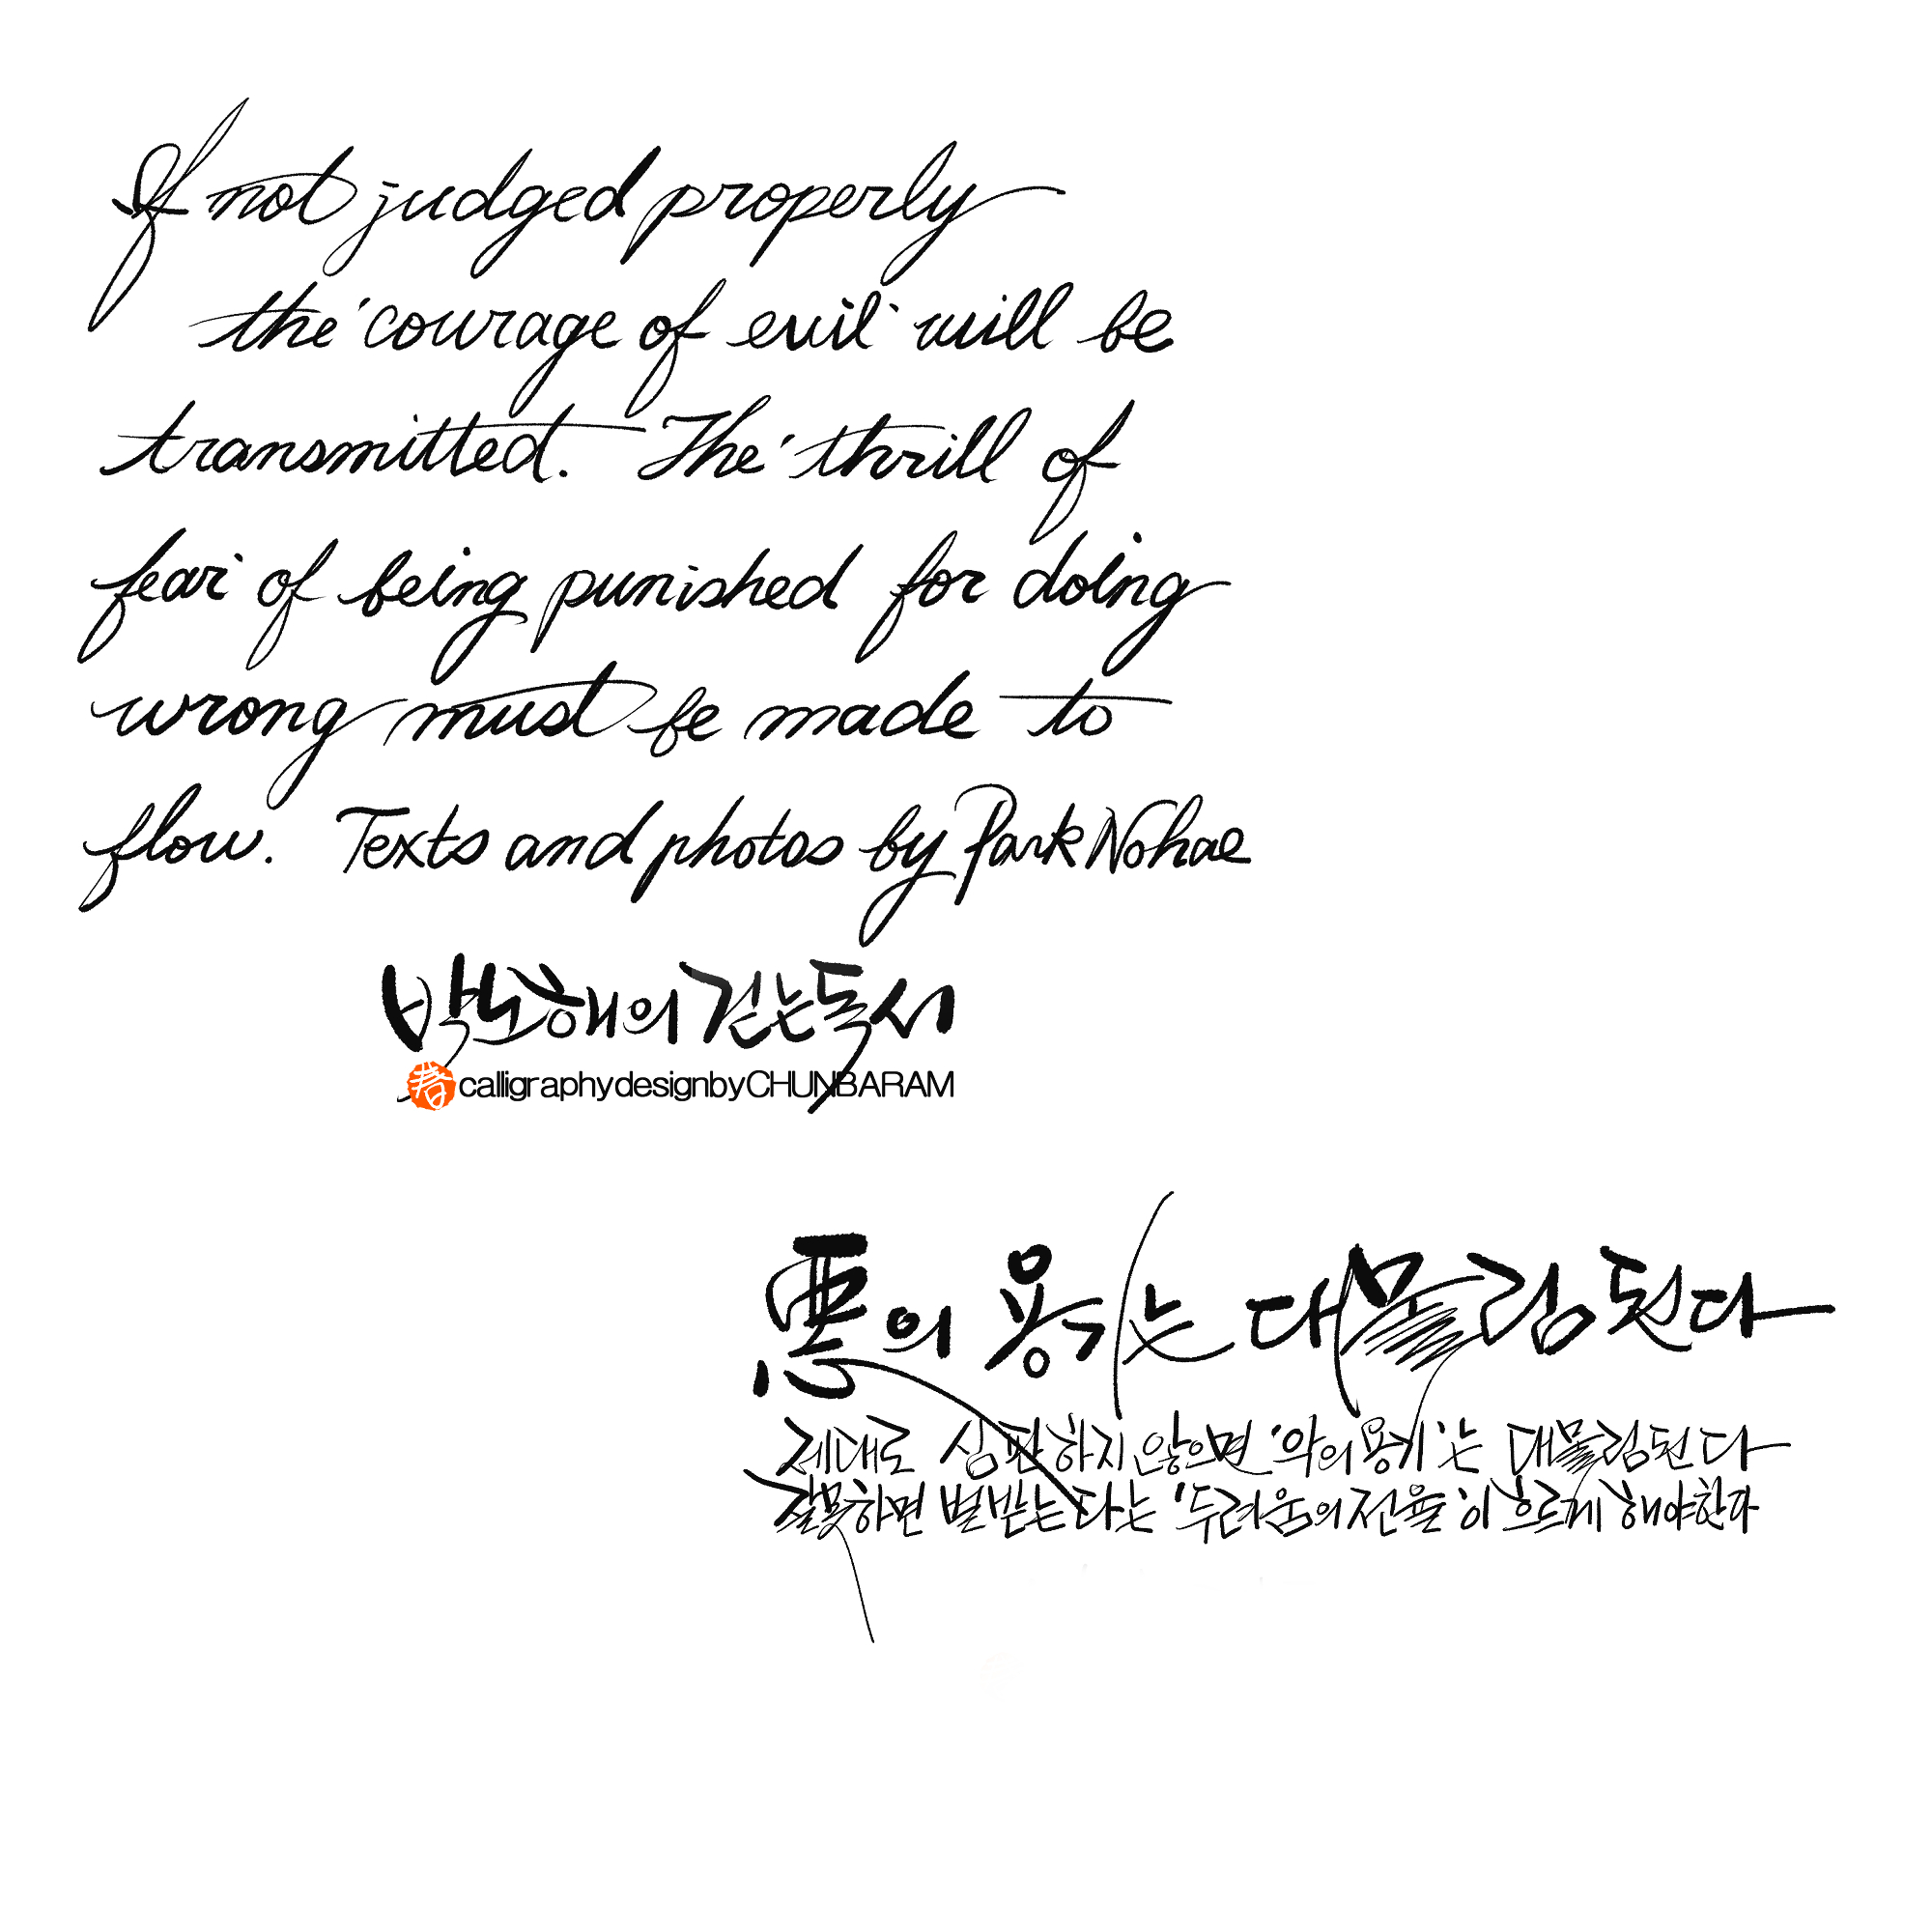 If not judged properly
the 'courage of evil' will be
transmitted. The 'thrill of
fear' of being punished for doing
wrong must be made to
flow. Texts and photos by Park Nohae
박노해의 걷는독서
春 calligraphydesignbyCHUNBARAM
惡의 용기는 대물림된다
제대로 심판하지 않으면 '악의 용기'는 대물림된다
잘못하면 벌받는다는 '두려움의 전율'이 흐르게 해야한다